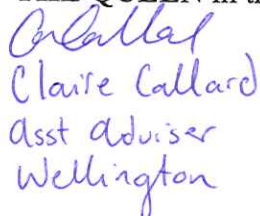 QUEEN in
Claire Callard
asst adviser
Wellington